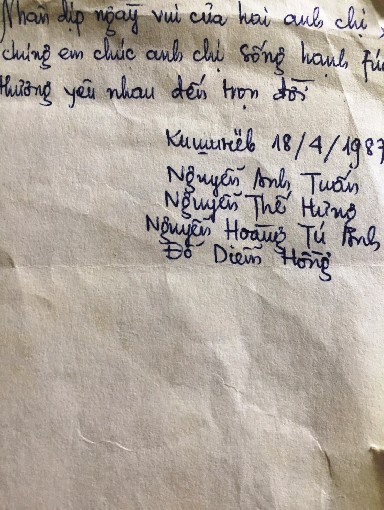 Nhân dịp ngày vui của hai anh chị,
chúng em chúc anh chị sống hạnh fú
thương yêu nhau đến trọn đời
Кишинёв 18/4/1987
Nguyễn Anh Tuấn
Nguyễn Thế Hưng
Nguyễn Hoàng Tú Anh
Đỗ Diễm Hồng